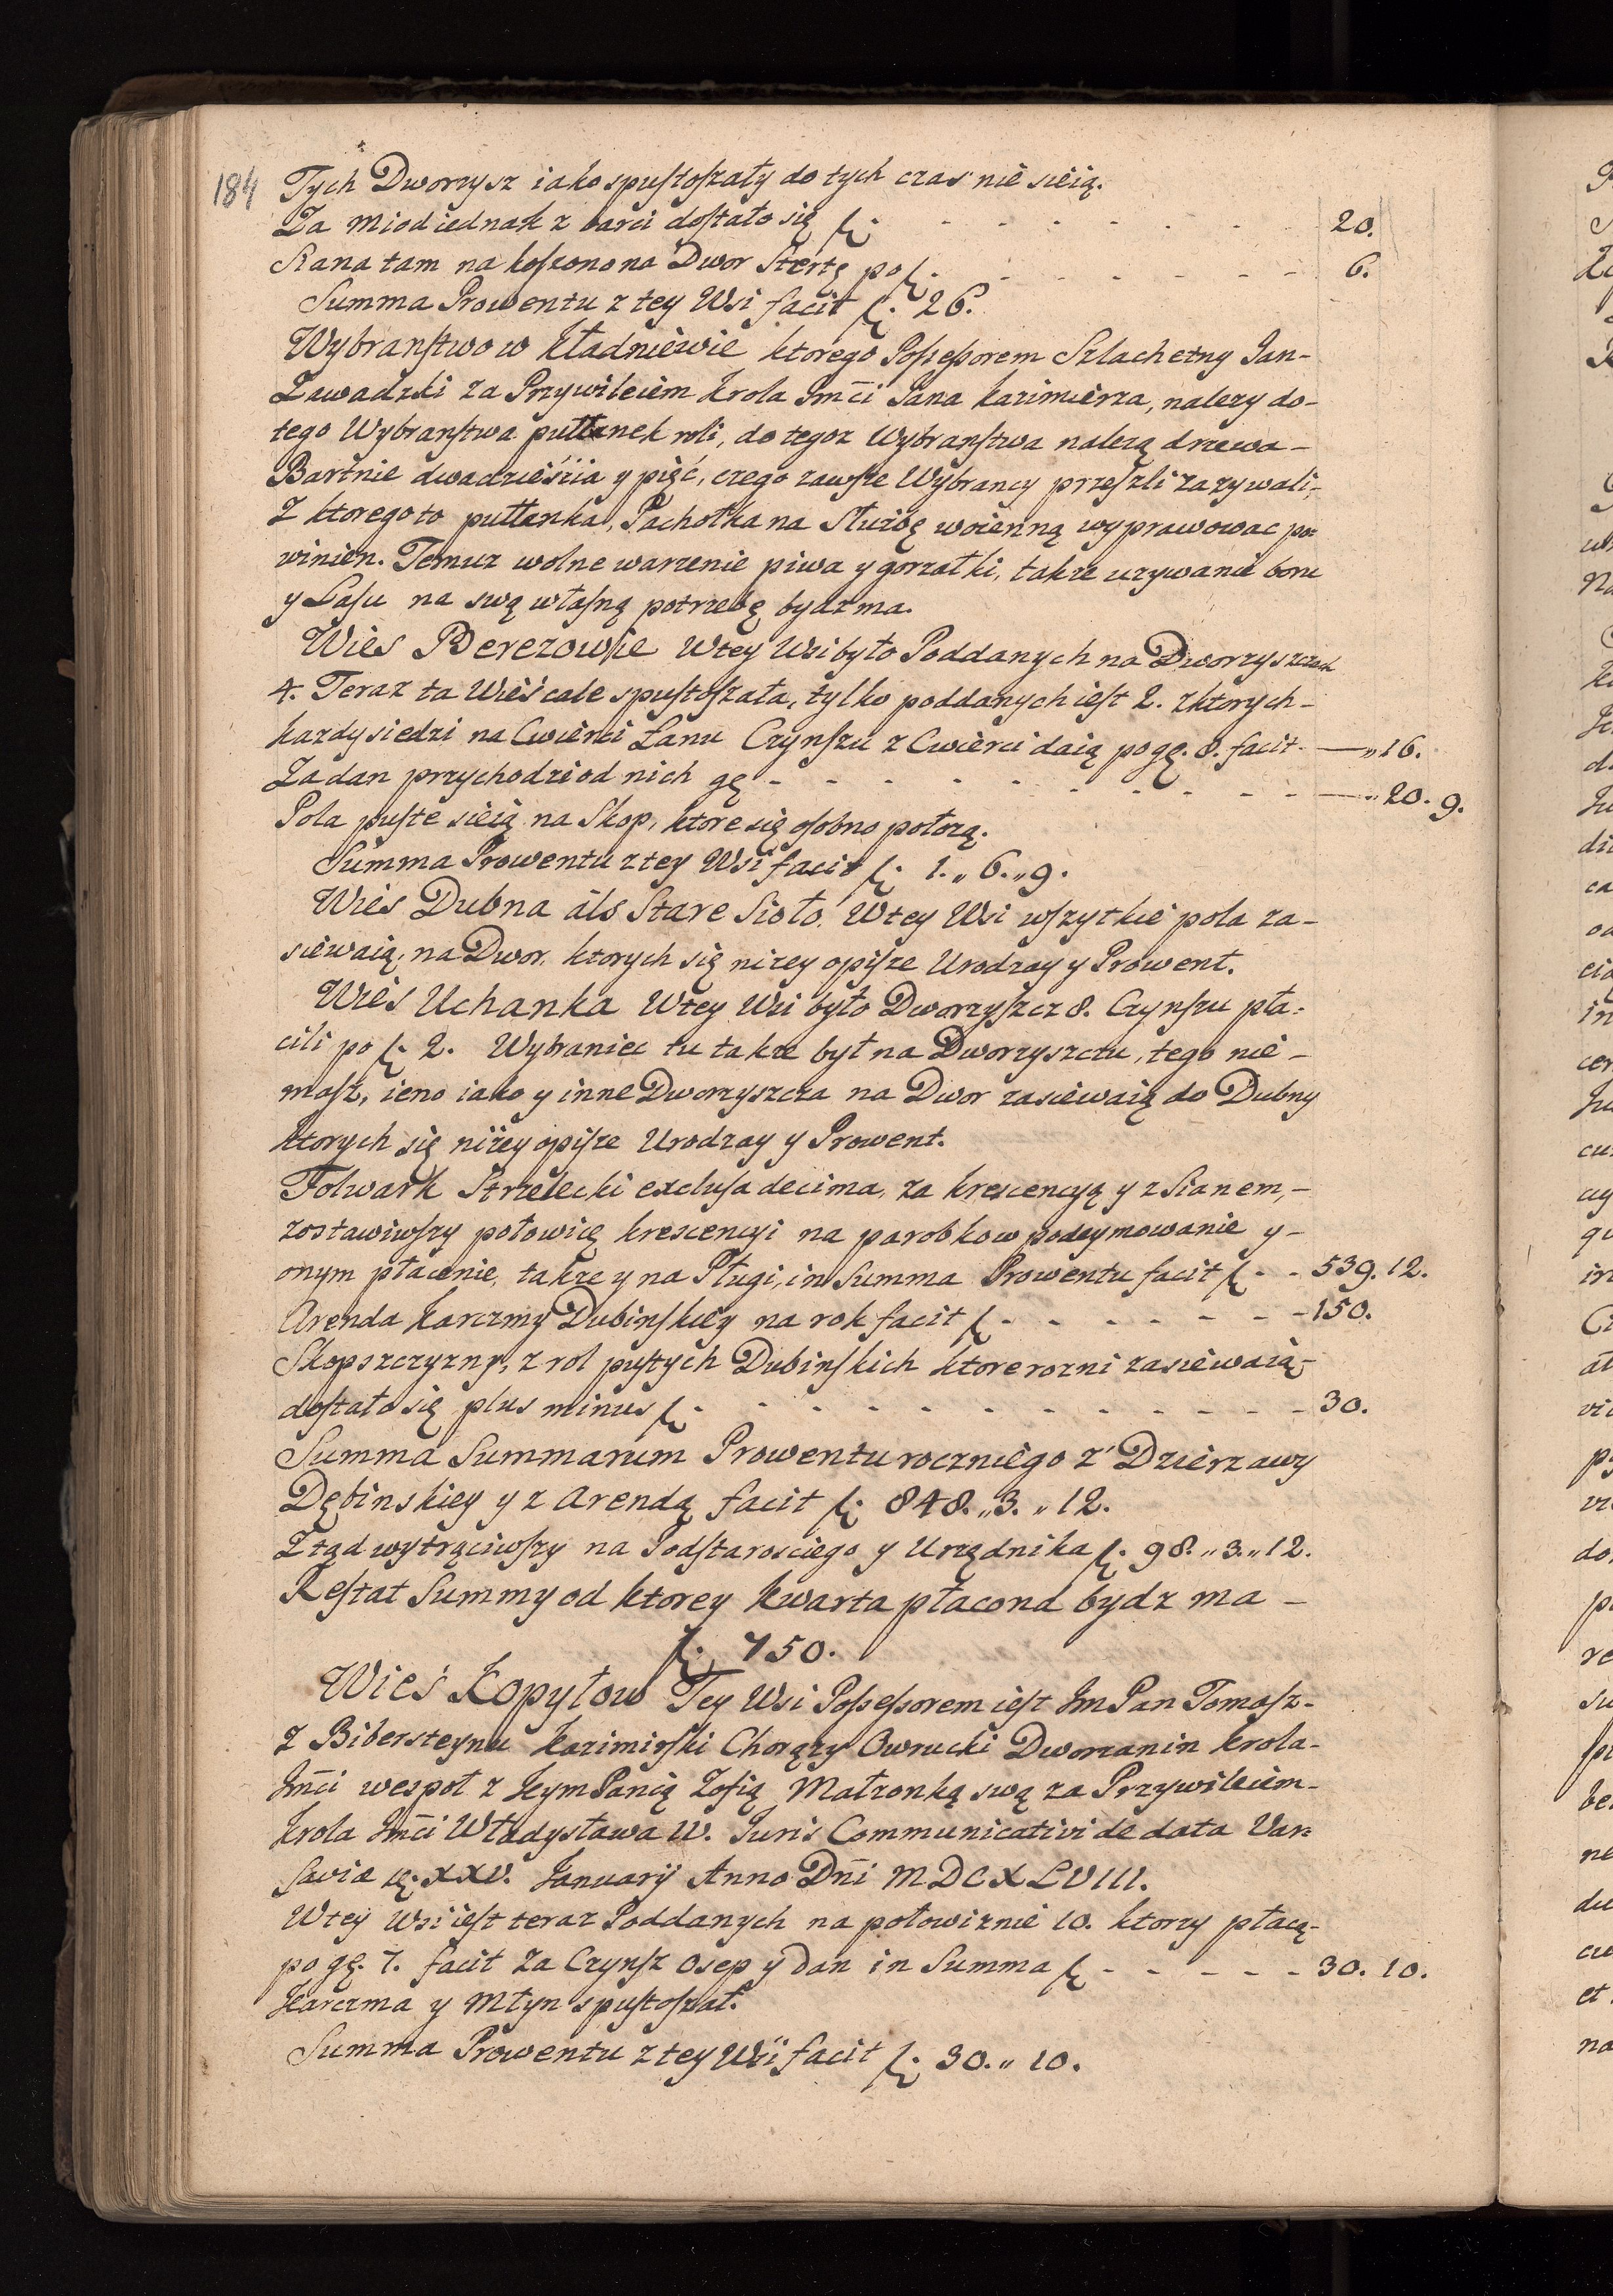 184
Tych Dworzysz iako spuſtoſzały do tych czas nie sieią.
Za miod iednak z barci doſtało się fl. - - - - - - 20.
Siana tam na koſzono na Dwor Stertę po fl. - - - - - - 6.
Summa Prowentu z tey Wsi facit fl. 26.
Wybranſtwo w Kładniewie ktorego Poſseſsorem Szlachetny Jan-
Zawadzki za Przywileiem Krola Jm̄ci Jana Kazimierza, nalezy do-
tego Wybranſtwa pułłanek roli, do tegoz Wybranſtwa nalezą drzewa-
Bartnie dwadzieścia y pięć, czego zawſze Wybrancy przeſzli zazywali,-
Z ktorego to pułłanka, Pachołka na Służbę woienną wyprawowac po=
winien. Temuz wolne warzenie piwa y gorzałki, takze uzywanie boru
y Laſu na swą własną potrzebę bydz ma.
Wies Berezowie W tey Wsi było Poddanych na Dworzyszczach
4. Teraz ta Wieś cale spuſtoſzała, tylko poddanych ieſt 2. z ktorych-
kazdy siedzi na Cwierci Łanu Czynſzu z Cwierci daią po gę. 8. facit. —„16.
Za dan przychodzi od nich gę - - - - - - - - —„20. 9.
Pola puſte sieią na Skop, ktore się osobno połozą.
Summa Prowentu z tey Wsi facit fl. 1.„6.„9.
Wieś Dubna als Stare Sioło. W tey Wsi wſzytkie pola za-
siewaią, na Dwor, ktorych się nizey opiſze Urodzay y Prowent.
Wieś Uchanka W tey Wsi było Dworzyſzcz 8. Czynſzu pła=
cili po fl. 2. Wybraniec tu takze był na Dworzyszczu, tego nie-
maſz, ieno iako y inne Dworzyszcza na Dwor zasiewaią do Dubny
ktorych się niżey opiſze Urodzay y Prowent.
Folwark Strzelecki excluſa decima, za krescencyą y z Sianem,-
zostawiwſzy połowicę krescencyi na parobkow podeymowanie y-
onym płacenie, takze y na Pługi, in Summa Prowentu facit fl - - 539. 12.
Arenda karczmy Dubinſkiey na rok facit fl - - - - - - 150.
Skopszczyzny, z rol puſtych Dubinſkich ktore rozni zasiewaią-
doſtało się plus minus fl. - - - - - - - - - - - 30.
Summa Summarum Prowentu roczniego z Dzierzawy
Dębinskiey y z Arendą facit fl. 848.„3.„12.
Ztąd wytrąciwſzy na Podſtarosciego y Urzędnika fl. 98.„3.„12.
Reſtat Summy od ktorey kwarta płacona bydz ma -
fl. 750.
Wieś Kopyłow Tey Wsi Poſseſsorem ieſt Jm Pan Tomaſz-
Z Bibersteynu Kazimirſki Chorązy Owrucki Dworzanin Krola-
Jm̄ci wespoł z Jeym Panią Zofią Małzonką swą za Przywileiem-
Krola Jm̄ci Władysława IV. Juris Communicativi de data Var=
ſavie XXV. January Anno Dn̄i MDCXLVIII.
W tey Wsi ieſt teraz Poddanych na połowiznie 10. ktorzy płacą-
po gę. 7. facit Za Czynſz Osep y Dan in Summa fl - - - - - 30. 10.
Karczma y Młyn spuſtoſzał.
Summa Prowentu z tey Wsi facit fl. 30.„10.